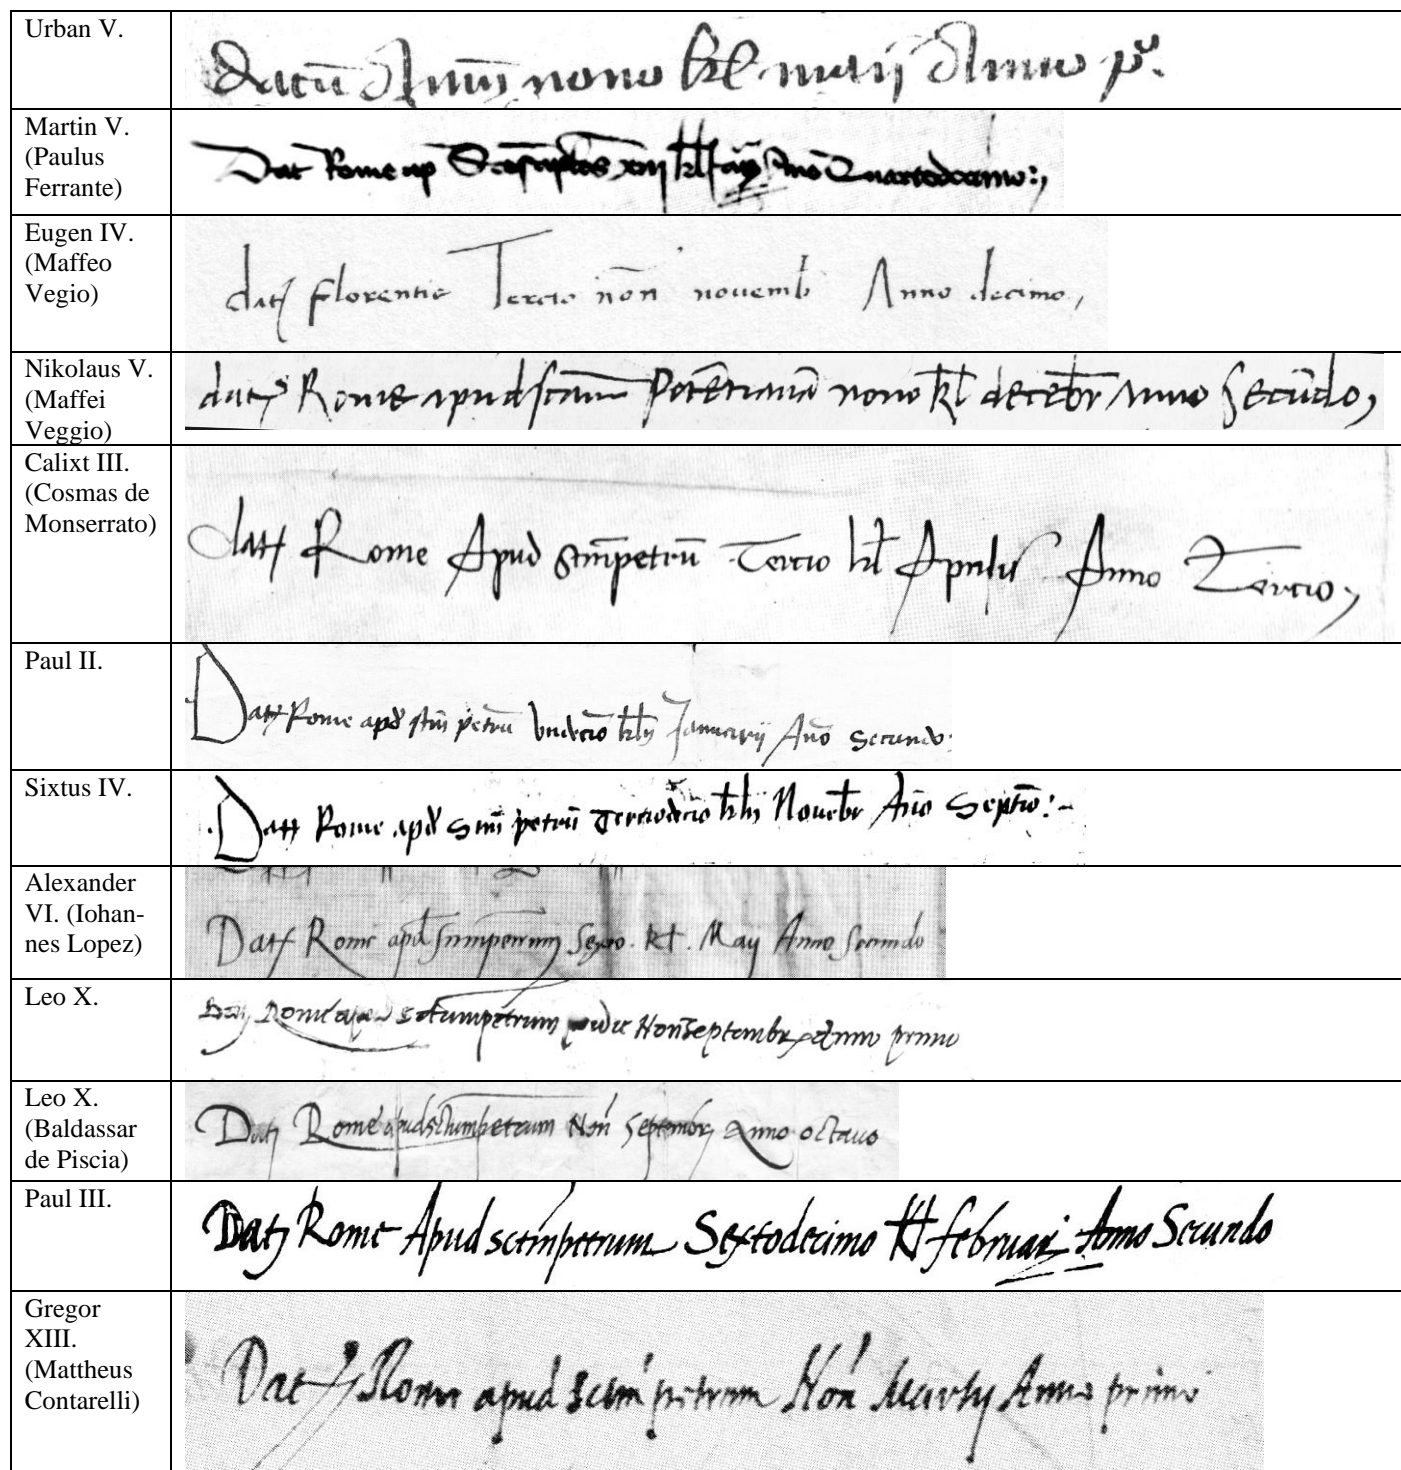 Urban V.
datū Auinῆ nono kl maij Anno pº.
Martin V.
(Paulus
Ferrante)
Dat Rome ap Sctos aplos xiij kl Anno Quartodecimo
Eugen IV.
(Maffeo
Vegio)
dat florentie Tercio non nouemb Anno decimo,
Nikolaus V.
(Maffei
Veggio)
dat Rome apud scam Potētianā nono kl decēbr Anno Secūdo,
Calixt III.
(Cosmas de
Monserrato)
dat Rome Apud Smpetrū Tercio kl Aprilis Anno Tercio,
Paul II.
Dat Rome apd stm petrū Vndecīo kln Januarij Año Secundo:
Sixtus IV.
Dat Rome apd Sm petrū Terciodecīo kln Nouēbr Año Septīo:-
Alexander
VI. (Iohan-
nes Lopez)
Dat Rome apd Smpetrum Sexto. kl. Maij Anno Secundo
Leo X.
Dat Rome apud Sctumpetrum pridie Non Septembr Anno primo
Leo X.
(Baldassar
de Piscia)
Dat Rome apud sctumpetrum Non Septembr Anno octauo
Paul III.
Dat Rome Apud sctmpetrum Sextodecimo kl februar Anno Secundo
Gregor
XIII.
(Mattheus
Contarelli)
Dat Rome apud sctm petrum Non Martij Anno primo